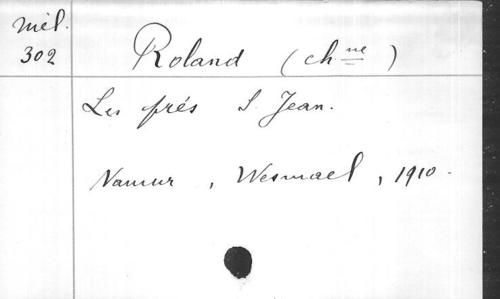 Mél.
302
Roland (chne)
Les frés S. Jean.
Namur, Wesmael, 1910.